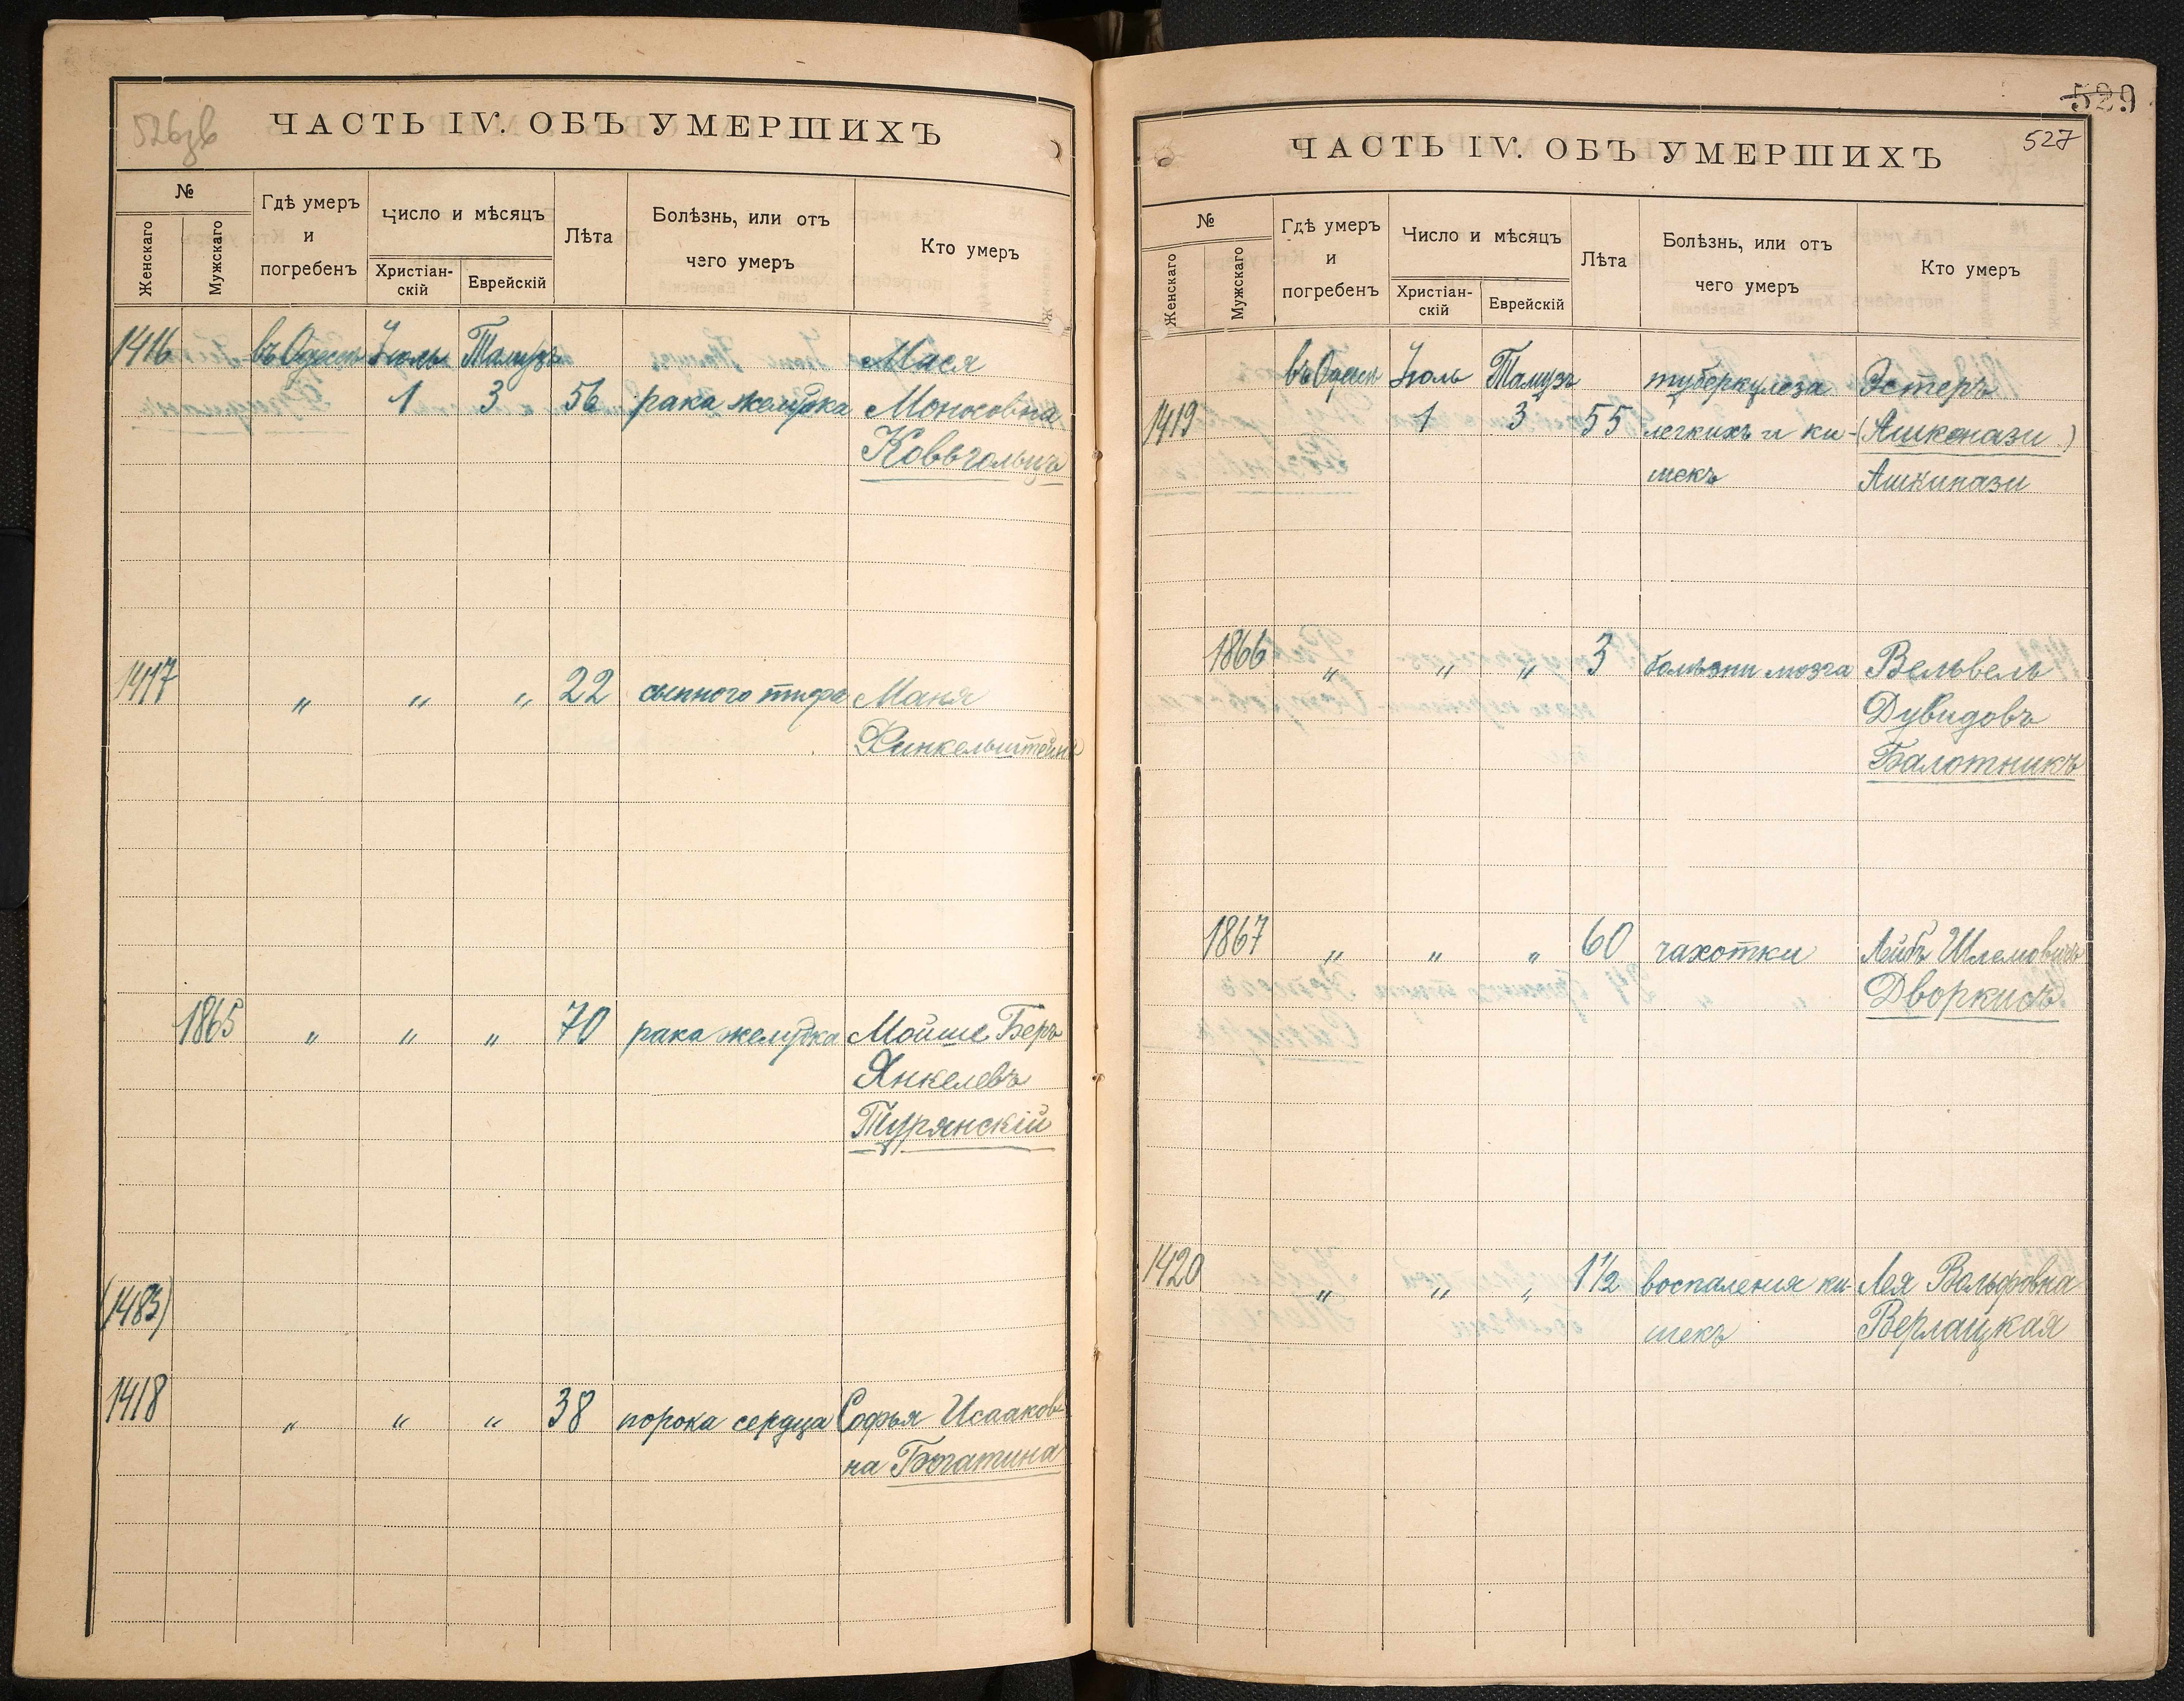 526зв
ЧАСТЬ IV. ОБЪ УМЕРШИХЪ
№
Женскаго
Мужскаго
Гдѣ умеръ
и
погребенъ
Число и мѣсяцъ
Христіан-
скій
Еврейскій
Лѣта
Болѣзнь, или отъ
чего умеръ
Кто умеръ
1416 въ Одессѣ Іюль Тамузъ Мася
1 3 56 рака желудка Моносовна
1417 " " " 22 сыпного тифа Маня
Финкельштейнъ
1865 " " " 70 рака желудка Мойше Беръ
Янкелевъ
Турянскій
(1483)
1418 " " " 38 порока сердца Софья Исааков-
на Богатина
529
527
ЧАСТЬ IV. ОБЪ УМЕРШИХЪ
№
Женскаго
Мужскаго
Гдѣ умеръ
и
погребенъ
Число и мѣсяцъ
Христіан-
скій
Еврейскій
Лѣта
Болѣзнь, или отъ
чего умеръ
Кто умеръ
въ Одессѣ Іюль Тамузъ туберкулеза Эстеръ
1419 1 3 55 легкихъ и ки- (Ашкенази)
шекъ Ашкинази
1866 " " " 3 болѣзни мозга Вельвель
Дувидовъ
Балотникъ
1867 " " " 60 чахотки Лейбъ Шлемовичъ
Дворкисъ
1420 " " " 1½ воспаления ки- Лея Вольфовна
шекъ Верлацкая